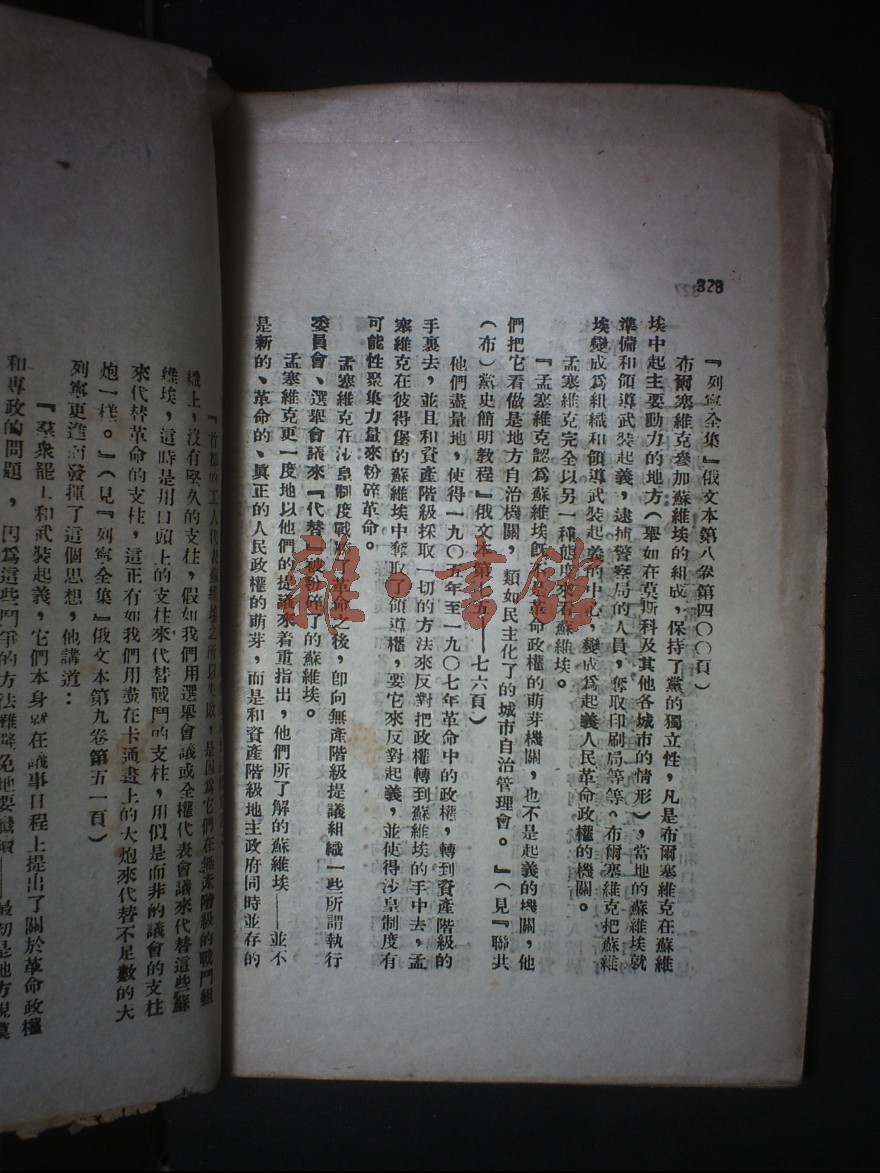 328
『列寧全集』俄文本第八卷第四〇〇頁）
布爾塞維克參加蘇維埃的組成，保持了黨的獨立性，凡是布爾塞維克在蘇維
埃中起主要動力的地方（舉如在莫斯科及其他各城市的情形），當地的蘇維埃就
準備和領導武裝起義，逮捕警察局的人員，奪取印刷局等等。布爾塞維克把蘇維
埃變成爲組織和領導武裝起義的中心，變成爲起義人民革命政權的機關。
孟塞維克完全以另一種態度來看蘇維埃。
『孟塞維克認爲蘇維埃既不是革命政權的萌芽機關，也不是起義的機關，他
們把它看做是地方自治機關，類如民主化了的城市自治管理會。』（見『聯共
（布）黨史簡明教程』俄文本第七五——七六頁）
他們盡量地，使得一九〇五年至一九〇七年革命中的政權，轉到資產階級的
手裏去，並且和資產階級採取一切的方法來反對把政權轉到蘇維埃的手中去，孟
塞維克在彼得堡的蘇維埃中奪取了領導權，要它來反對起義，並使得沙皇制度有
可能性聚集力量來粉碎革命。
孟塞維克在沙皇制度戰勝了革命之後，卽向無產階級提議組織一些所謂執行
委員會、選舉會議來『代替』被粉碎了的蘇維埃。
孟塞維克更一度地以他們的提議來着重指出，他們所了解的蘇維埃——並不
是新的、革命的、眞正的人民政權的萌芽，而是和資產階級地主政府同時並存的
『首都的工人代表蘇維埃之所以失敗，是因爲它們在無產階級的戰鬥組
織上，沒有堅久的支柱，假如我們用選舉會議或全權代表會議來代替這些蘇
維埃，這時是用口頭上的支柱來代替戰鬥的支柱，用似是而非的議會的支柱
來代替革命的支柱，這正有如我們用畫在卡通畫上的大炮來代替不足數的大
炮一樣。』（見『列寧全集』俄文本第九卷第五一頁）
列寧更進而發揮了這個思想，他講道：
『羣衆罷工和武裝起義，它們本身就在議事日程上提出了關於革命政權
和專政的問題，因爲這些鬥爭的方法難免地要——最初是地方規模
雜·書館